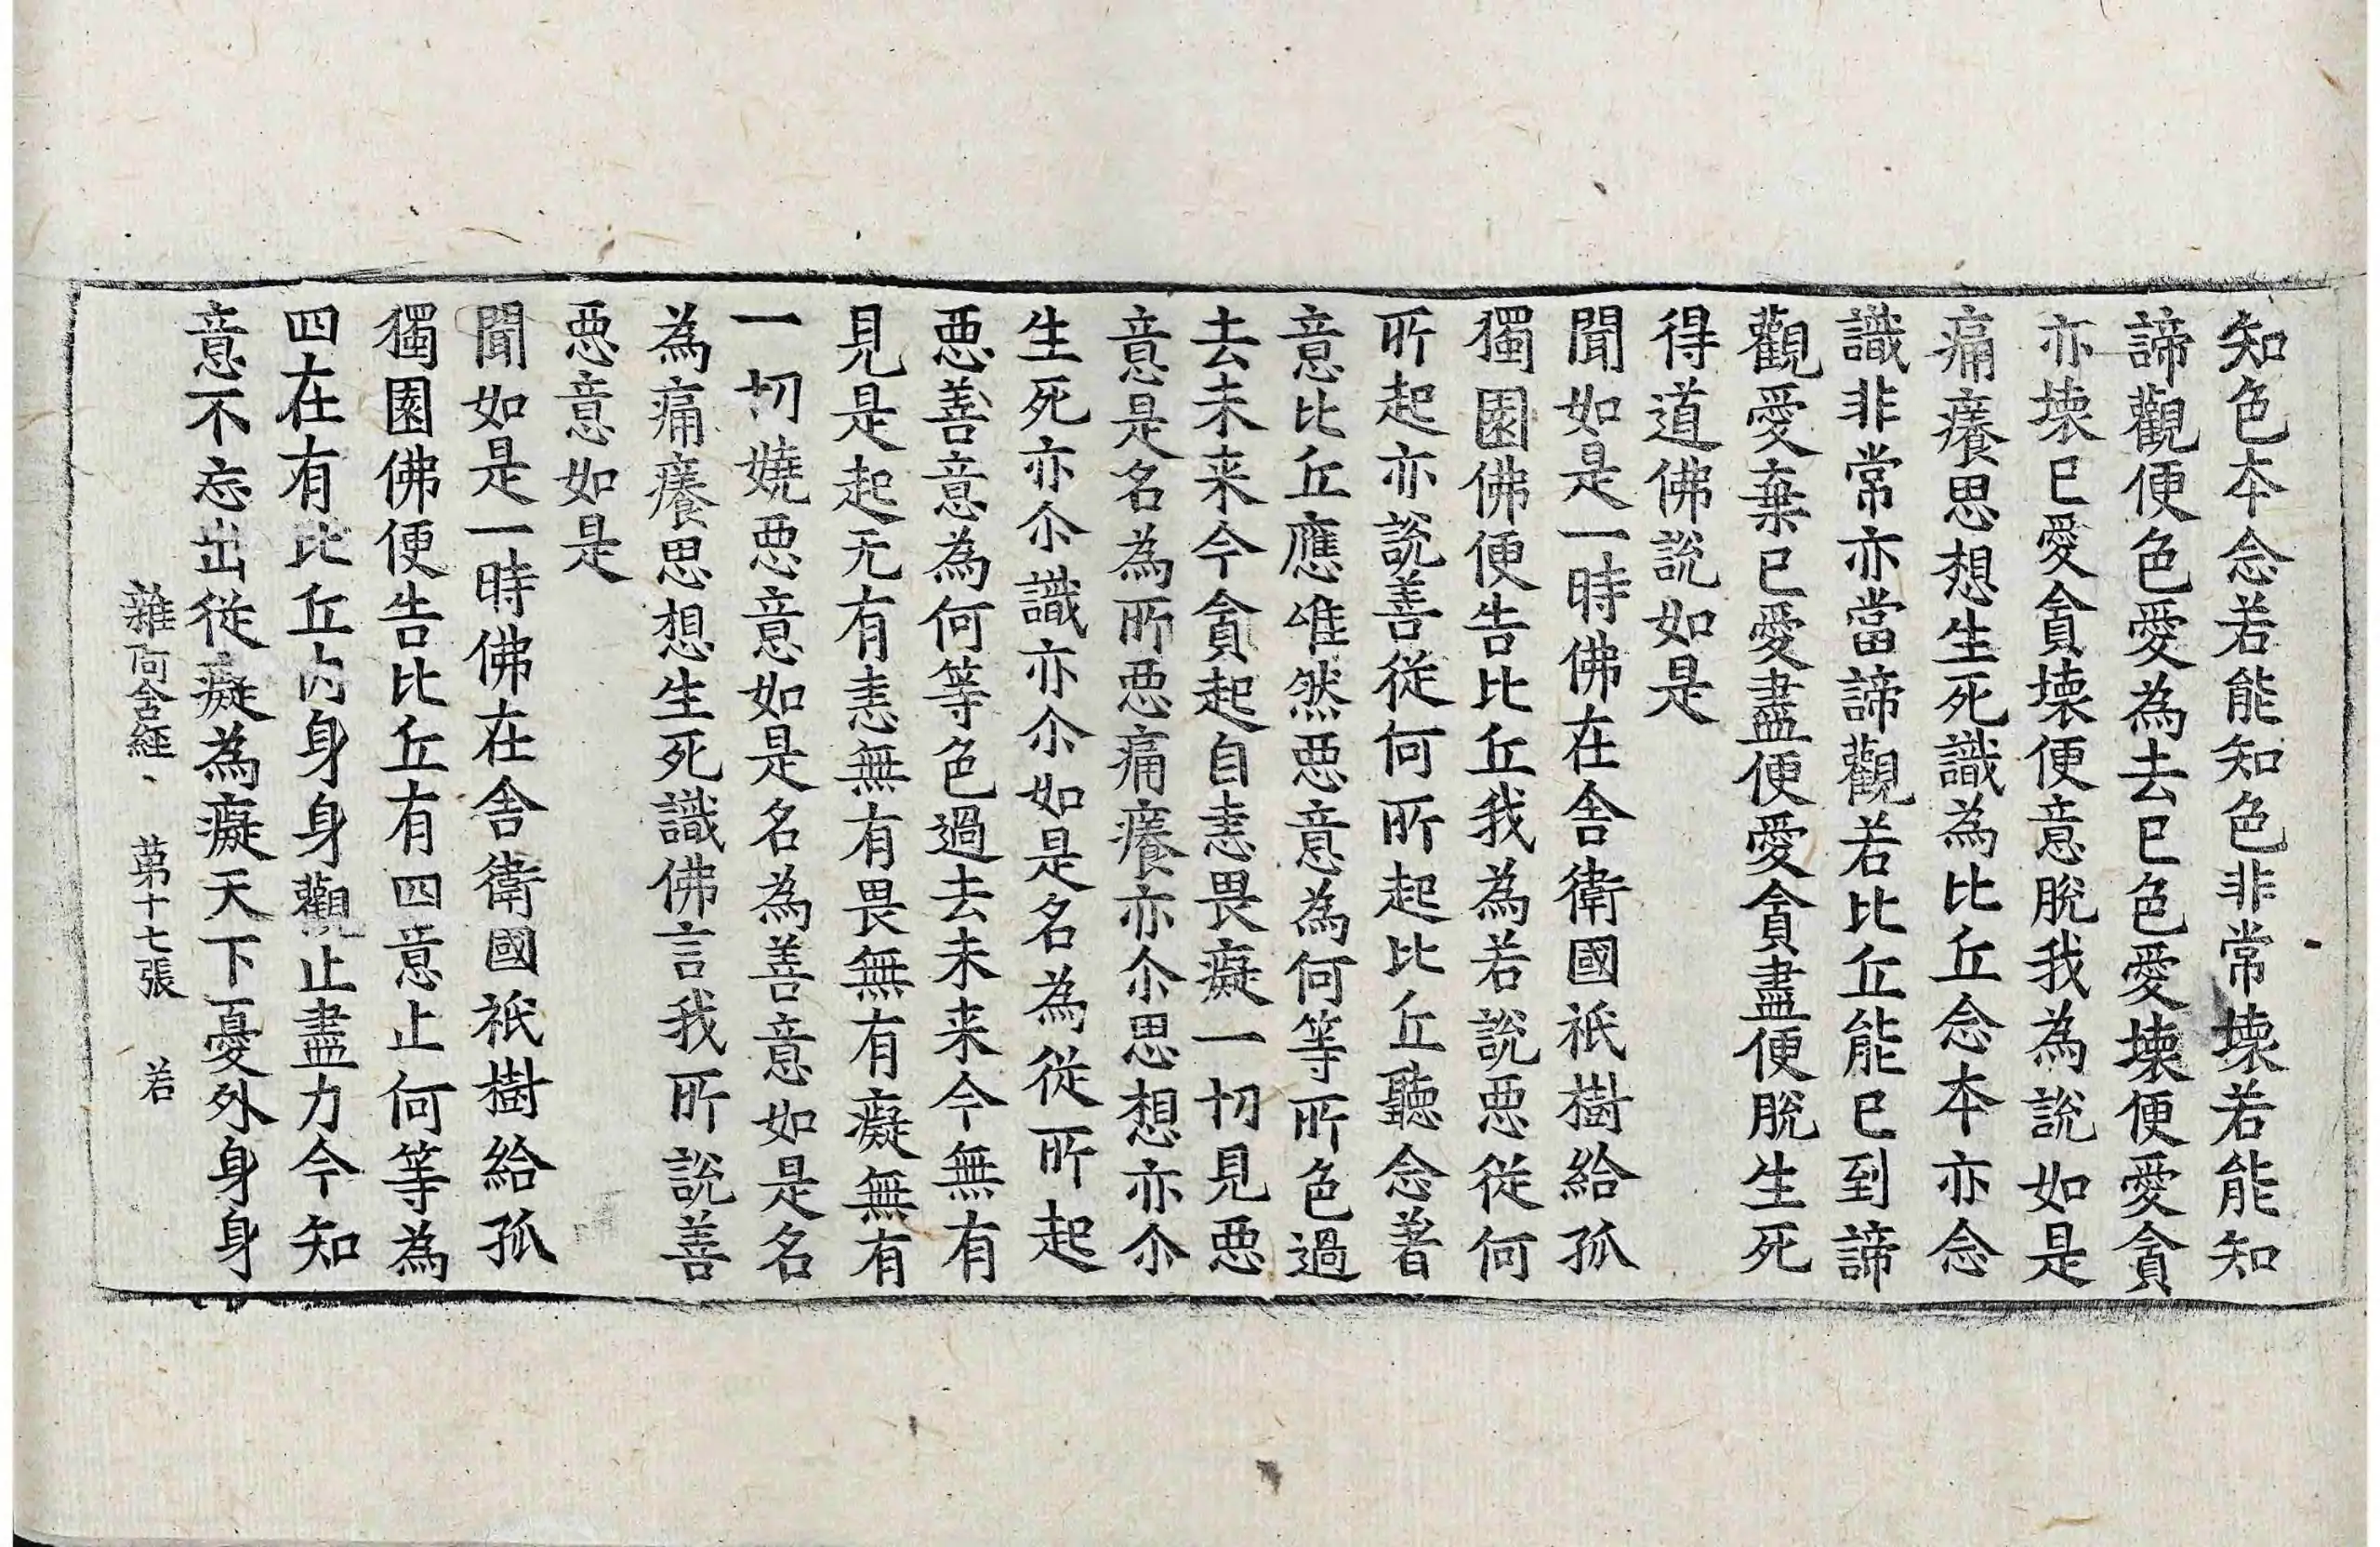 知色本念若能知色非常壞若能知
諦觀便色愛為去已色愛壞便愛貪
亦壞已愛貪壞便意脫我為說如是
痛癢思想生死識為比丘念本亦念
識非常亦當諦觀若比丘能已到諦
觀愛棄已愛盡便愛貪盡便脫生死
得道佛說如是
聞如是一時佛在舍衛國祇樹給孤
獨園佛便告比丘我為若說惡從何
所起亦說善從何所起比丘聽念著
意比丘應唯然惡意為何等所色過
去未来今貪起自恚畏癡一切見惡
意是名為所惡痛癢亦尒思想亦尒
生死亦尒識亦尒如是名為從所起
惡善意為何等色過去未来今無有
見是起无有恚無有畏無有癡無有
一切嬈惡意如是名為善意如是名
為痛癢思想生死識佛言我所說善
惡意如是
聞如是一時佛在舍衛國祇樹給孤
獨園佛便告比丘有四意止何等為
四在有比丘內身身觀止盡力今知
意不忘出從癡為癡天下憂外身身
雜阿含經、 苐十七張 若